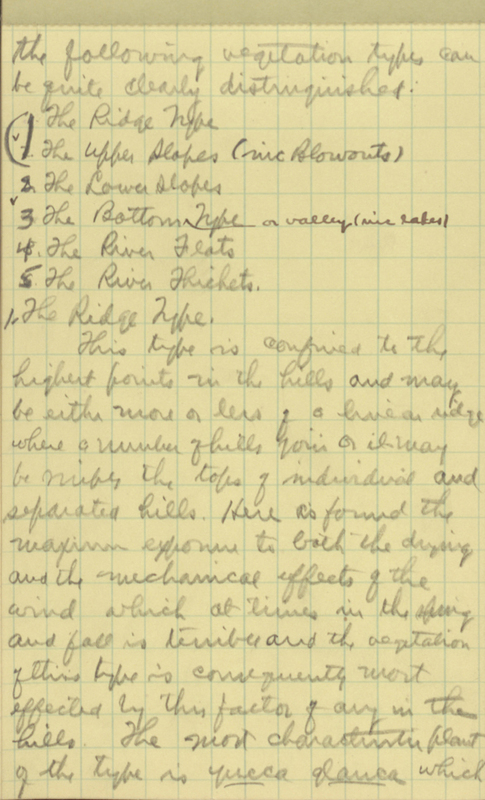 the following vegetation types can
be quite clearly distinguished:
1. The Ridge Type
The Upper Slopes (inc Blowouts)
2. The Lower Slopes
3 The Bottom Type or valley (inc lakes)
4. The River Flats
5. The River Thickets.
1. The Ridge Type.
This type is confined to the
highest points in the hills and may
be either more or less of a linear ridge
where a number of hills join or it may
be the tops of individual and
separated hills. Here is found the
maximum exposure to both the drying
and the mechanical effects of the
wind which at times in the spring
and fall is terrible and the vegetation
of this type is consequently most
effected by this factor of any in the
hills. The most characteristic plant
of the type is yucca glauca which